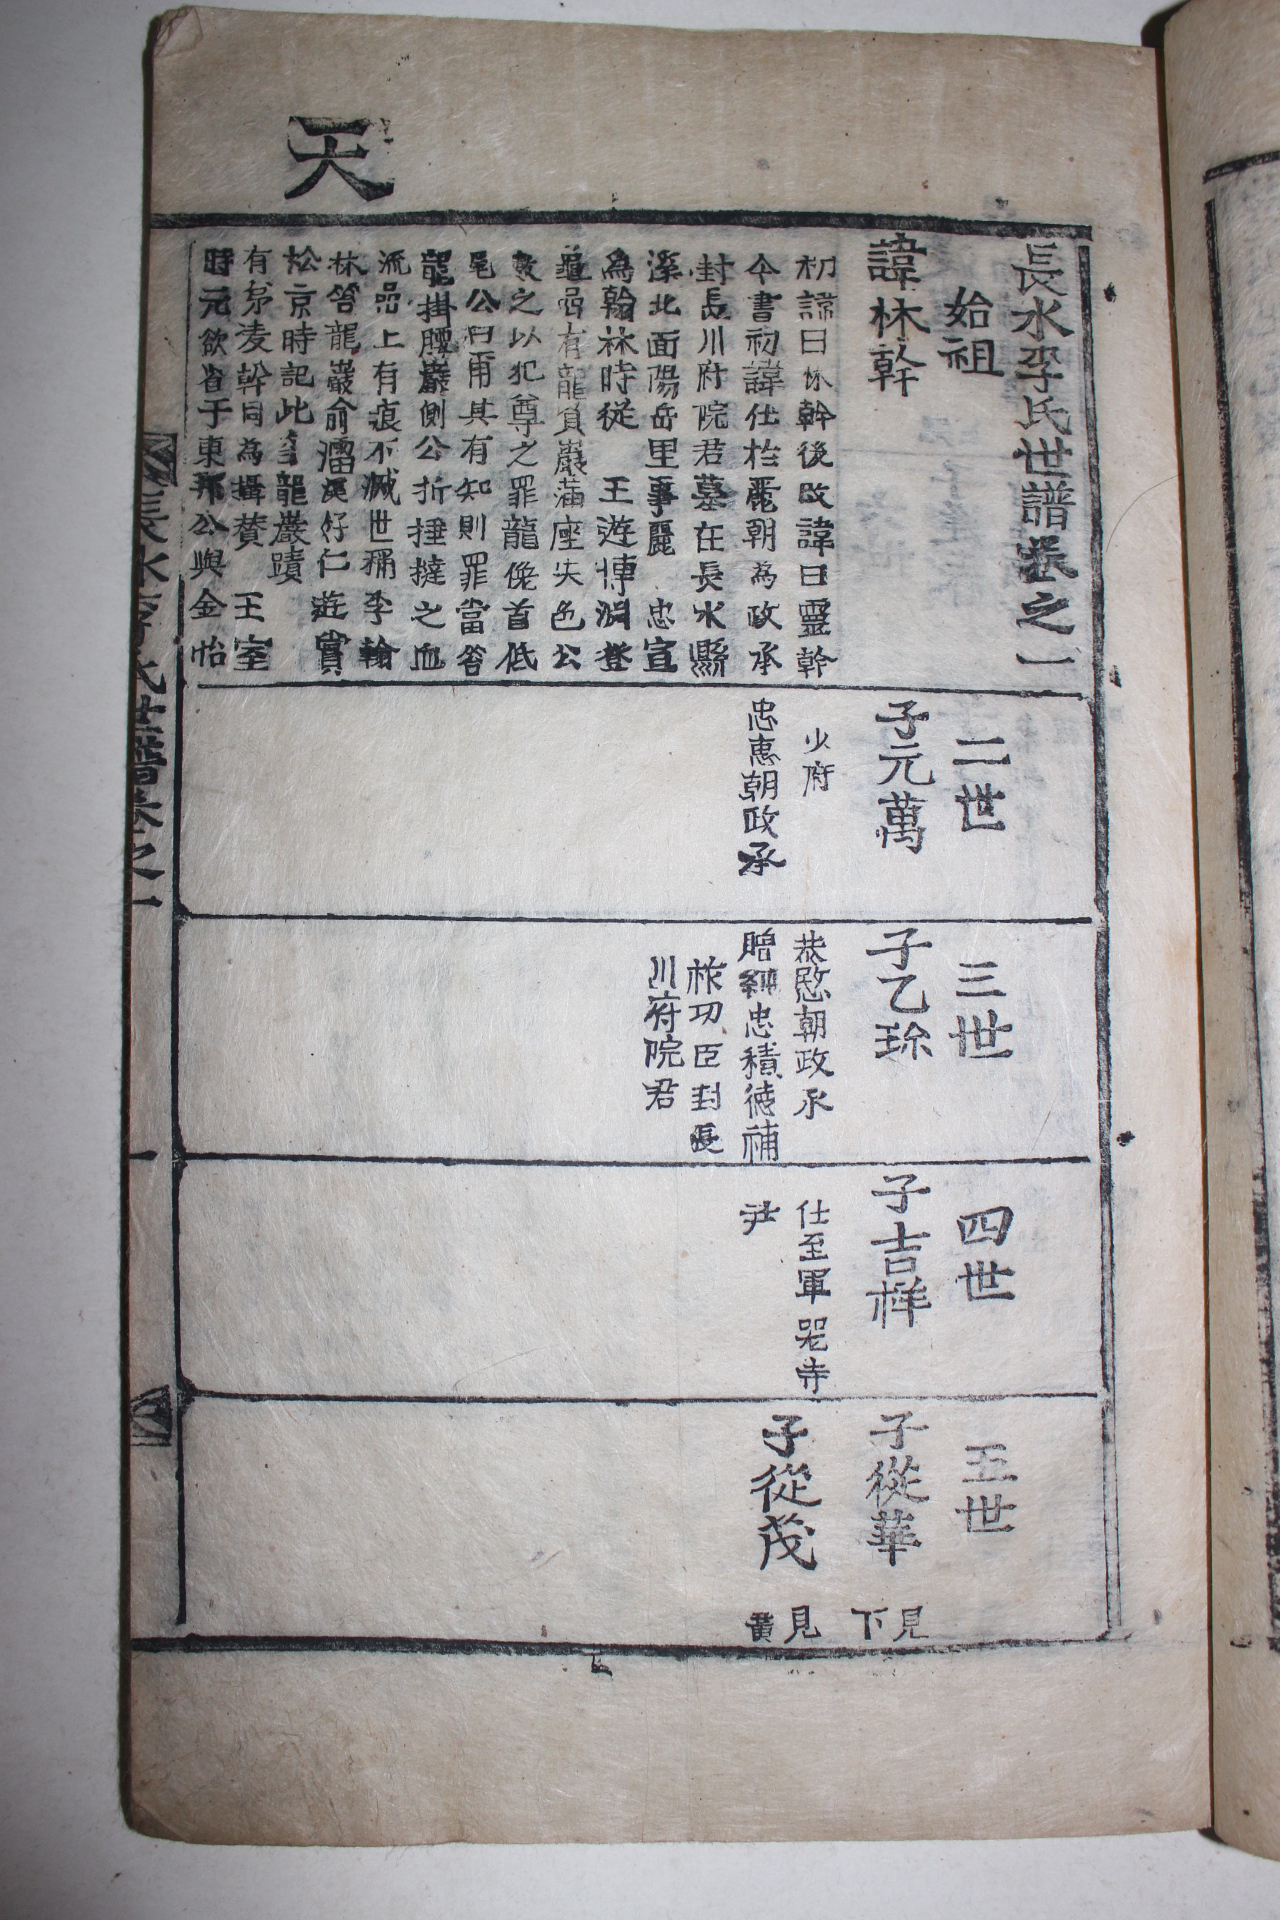 天
長水李氏世譜卷之一
始祖
諱林幹
初諱曰林幹後改諱曰靈幹
今書初諱仕於麗朝為政承
封長川府院君墓在長水縣
溪北面陽岳里事麗 忠宣
為翰林時從 王遊博淵登
龜岩有龍負巖滿座失色公
數之以犯尊之罪龍俛首低
尾公曰甭其有知則罪當笞
龍掛腰巖側公折捶撻之血
流岩上有痕不滅世稱李翰
林笞龍巖俞㵢溪好仁遊賞
松京時記此 龍巖蹟
有 凌幹同為攝贊 王室
時元欲省于東邦公與金怡
二世
子元萬
少府
忠惠朝政承
三世
子乙珎
恭愍朝政承
贈 忠積德補
祚功臣封長
川府院君
四世
子吉祥
仕至軍器寺
尹
五世
子從華
見下
子從茂
見黃
長水李氏世譜卷之一
一